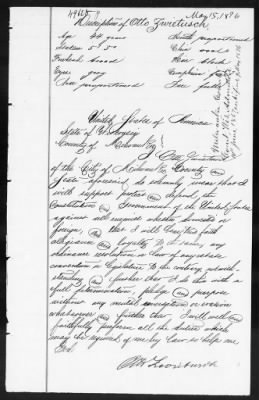 Description of Otto Zwietusch
May 15, 1886
Age 54 years
Mouth proportioned
Stature 5' 5"
Chin oval
Forehead broad
Hair black
Eyes gray
Complexion fair
Nose proportioned
Face full
United States of America
State of
County of Milwaukee
I Otto Zwietusch
of the City of Milwaukee County
and
aforesaid, do solemnly swear that I
will support protect and defend the
Constitution and Government of the United States
against all enemies whether domestic or
foreign, and that I will bear true faith
allegiance and loyalty to the same, any
ordinance resolution or law of any state
convention or legislature to the contrary notwith-
standing and further that I do this with a
full determination, pledge and purpose
without any mental reservation or evasion
whatsoever and further that I will well and
faithfully perform all the duties which
may be required of me by law so help me
God.
Otto Zwietusch